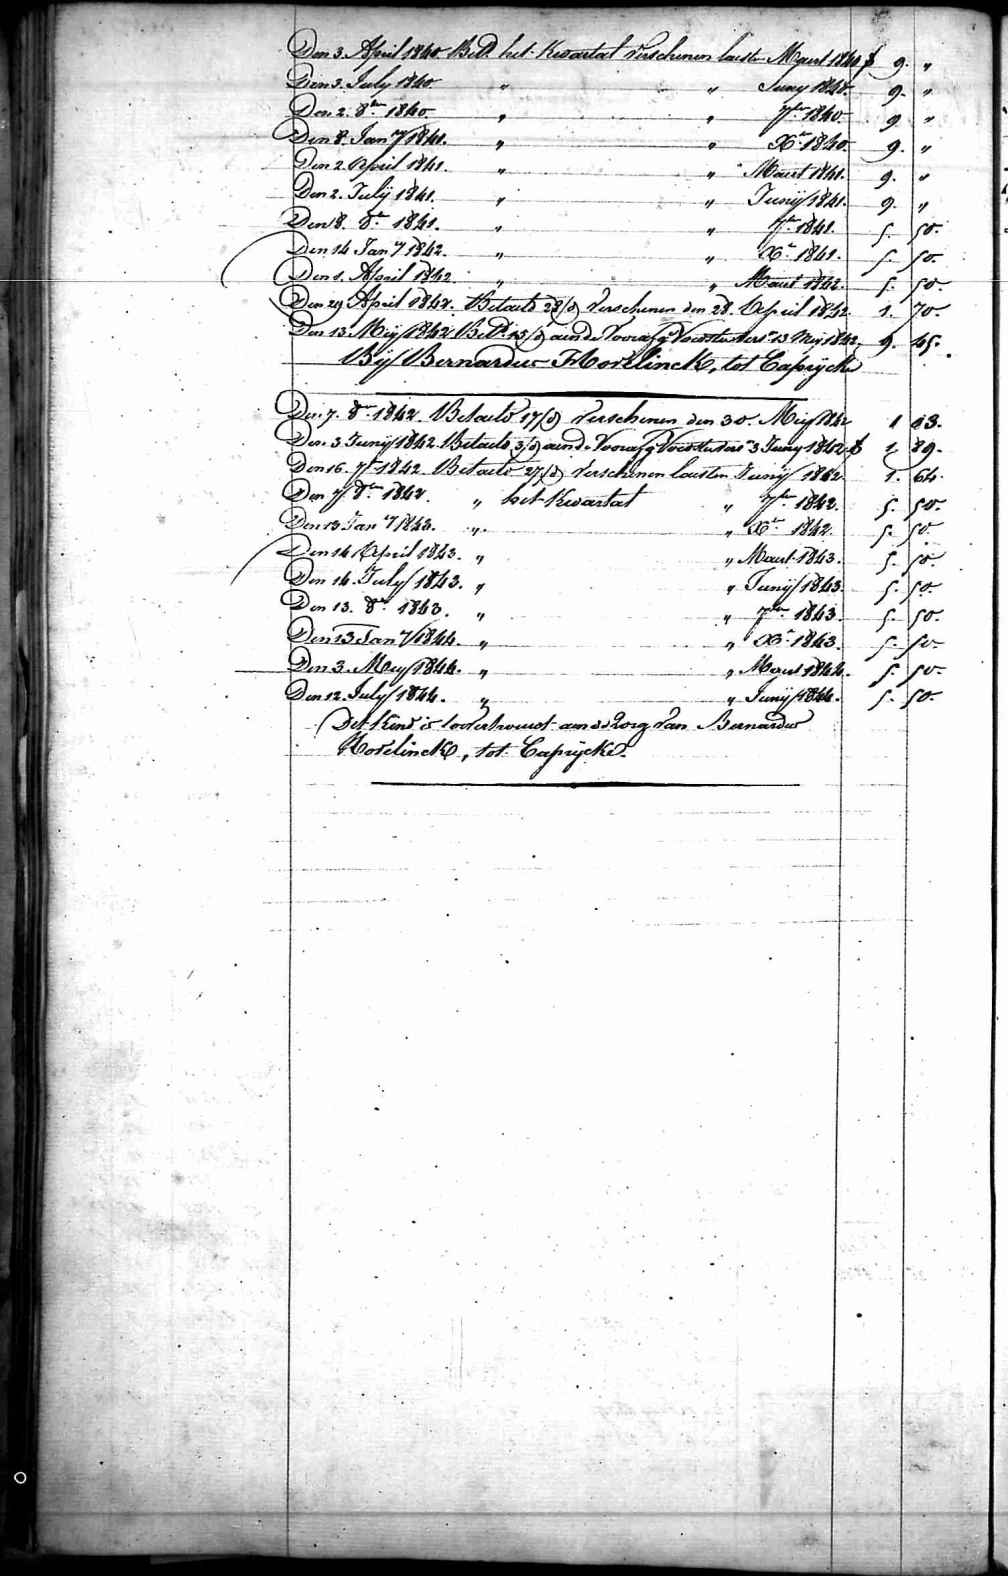 Den 3. April 1840. Betd. het Kwartal Verschenen laesten Maert 1840 f 9. „
Den 3. July 1840. „ „ Juny 1840. 9. „
Den 2. 8ber 1840. „ „ 7ber 1840. 9. „
Den 8. Jany 1841. „ „ Xber 1840. 9. „
Den 2. April 1841. „ „ Maert 1841. 9. „
Den 2. Julij 1841. „ „ Junij 1841. 9. „
Den 8. 8ber 1841. „ „ 7ber 1841. 5. 50.
Den 14 Jany 1842. „ „ Xber 1841. 5. 50.
Den 1. April 1842. „ „ Maert 1842. 5. 50.
Den 29 April 1842. Betaeld 28/d Verschenen den 28. April 1842 1. 70.
Den 13. Meij 1842 Betd. 15/d aen de 13 Meij 1842. 9. 45.
Bij Bernardus Hovelinck, tot Caprijcke
Den 7. 8ber 1842. Betaeld 17/d Verschenen den 30. Meij 1842 1 03.
Den 3 Junij 1842. Betaeld 3/d aen de 3 Juny 1842 f 1. 89.
Den 16. 7ber 1842. Betaeld 27/d Verschenen laesten Junij 1842 1. 64.
Den 7 8ber 1842. „ het Kwartal „ 7ber 1842. 5. 50.
Den 13 Jany 1843. „ „ Xber 1842. 5. 50.
Den 14 April 1843. „ „ Maert 1843. 5. 50.
Den 14. July 1843. „ „ Junij 1843. 5. 50.
Den 13. 8ber 1843. „ „ 7ber 1843. 5. 50.
Den 13 Jany 1844. „ „ Xber 1843. 5. 50.
Den 3. Meij 1844. „ „ Maert 1844. 5. 50.
Den 12. July 1844. „ „ Junij 1844. 5. 50.
Det Kind is toevertrouwt aen de Zorg van Bernardus
Hovelinck, tot Caprijcke.